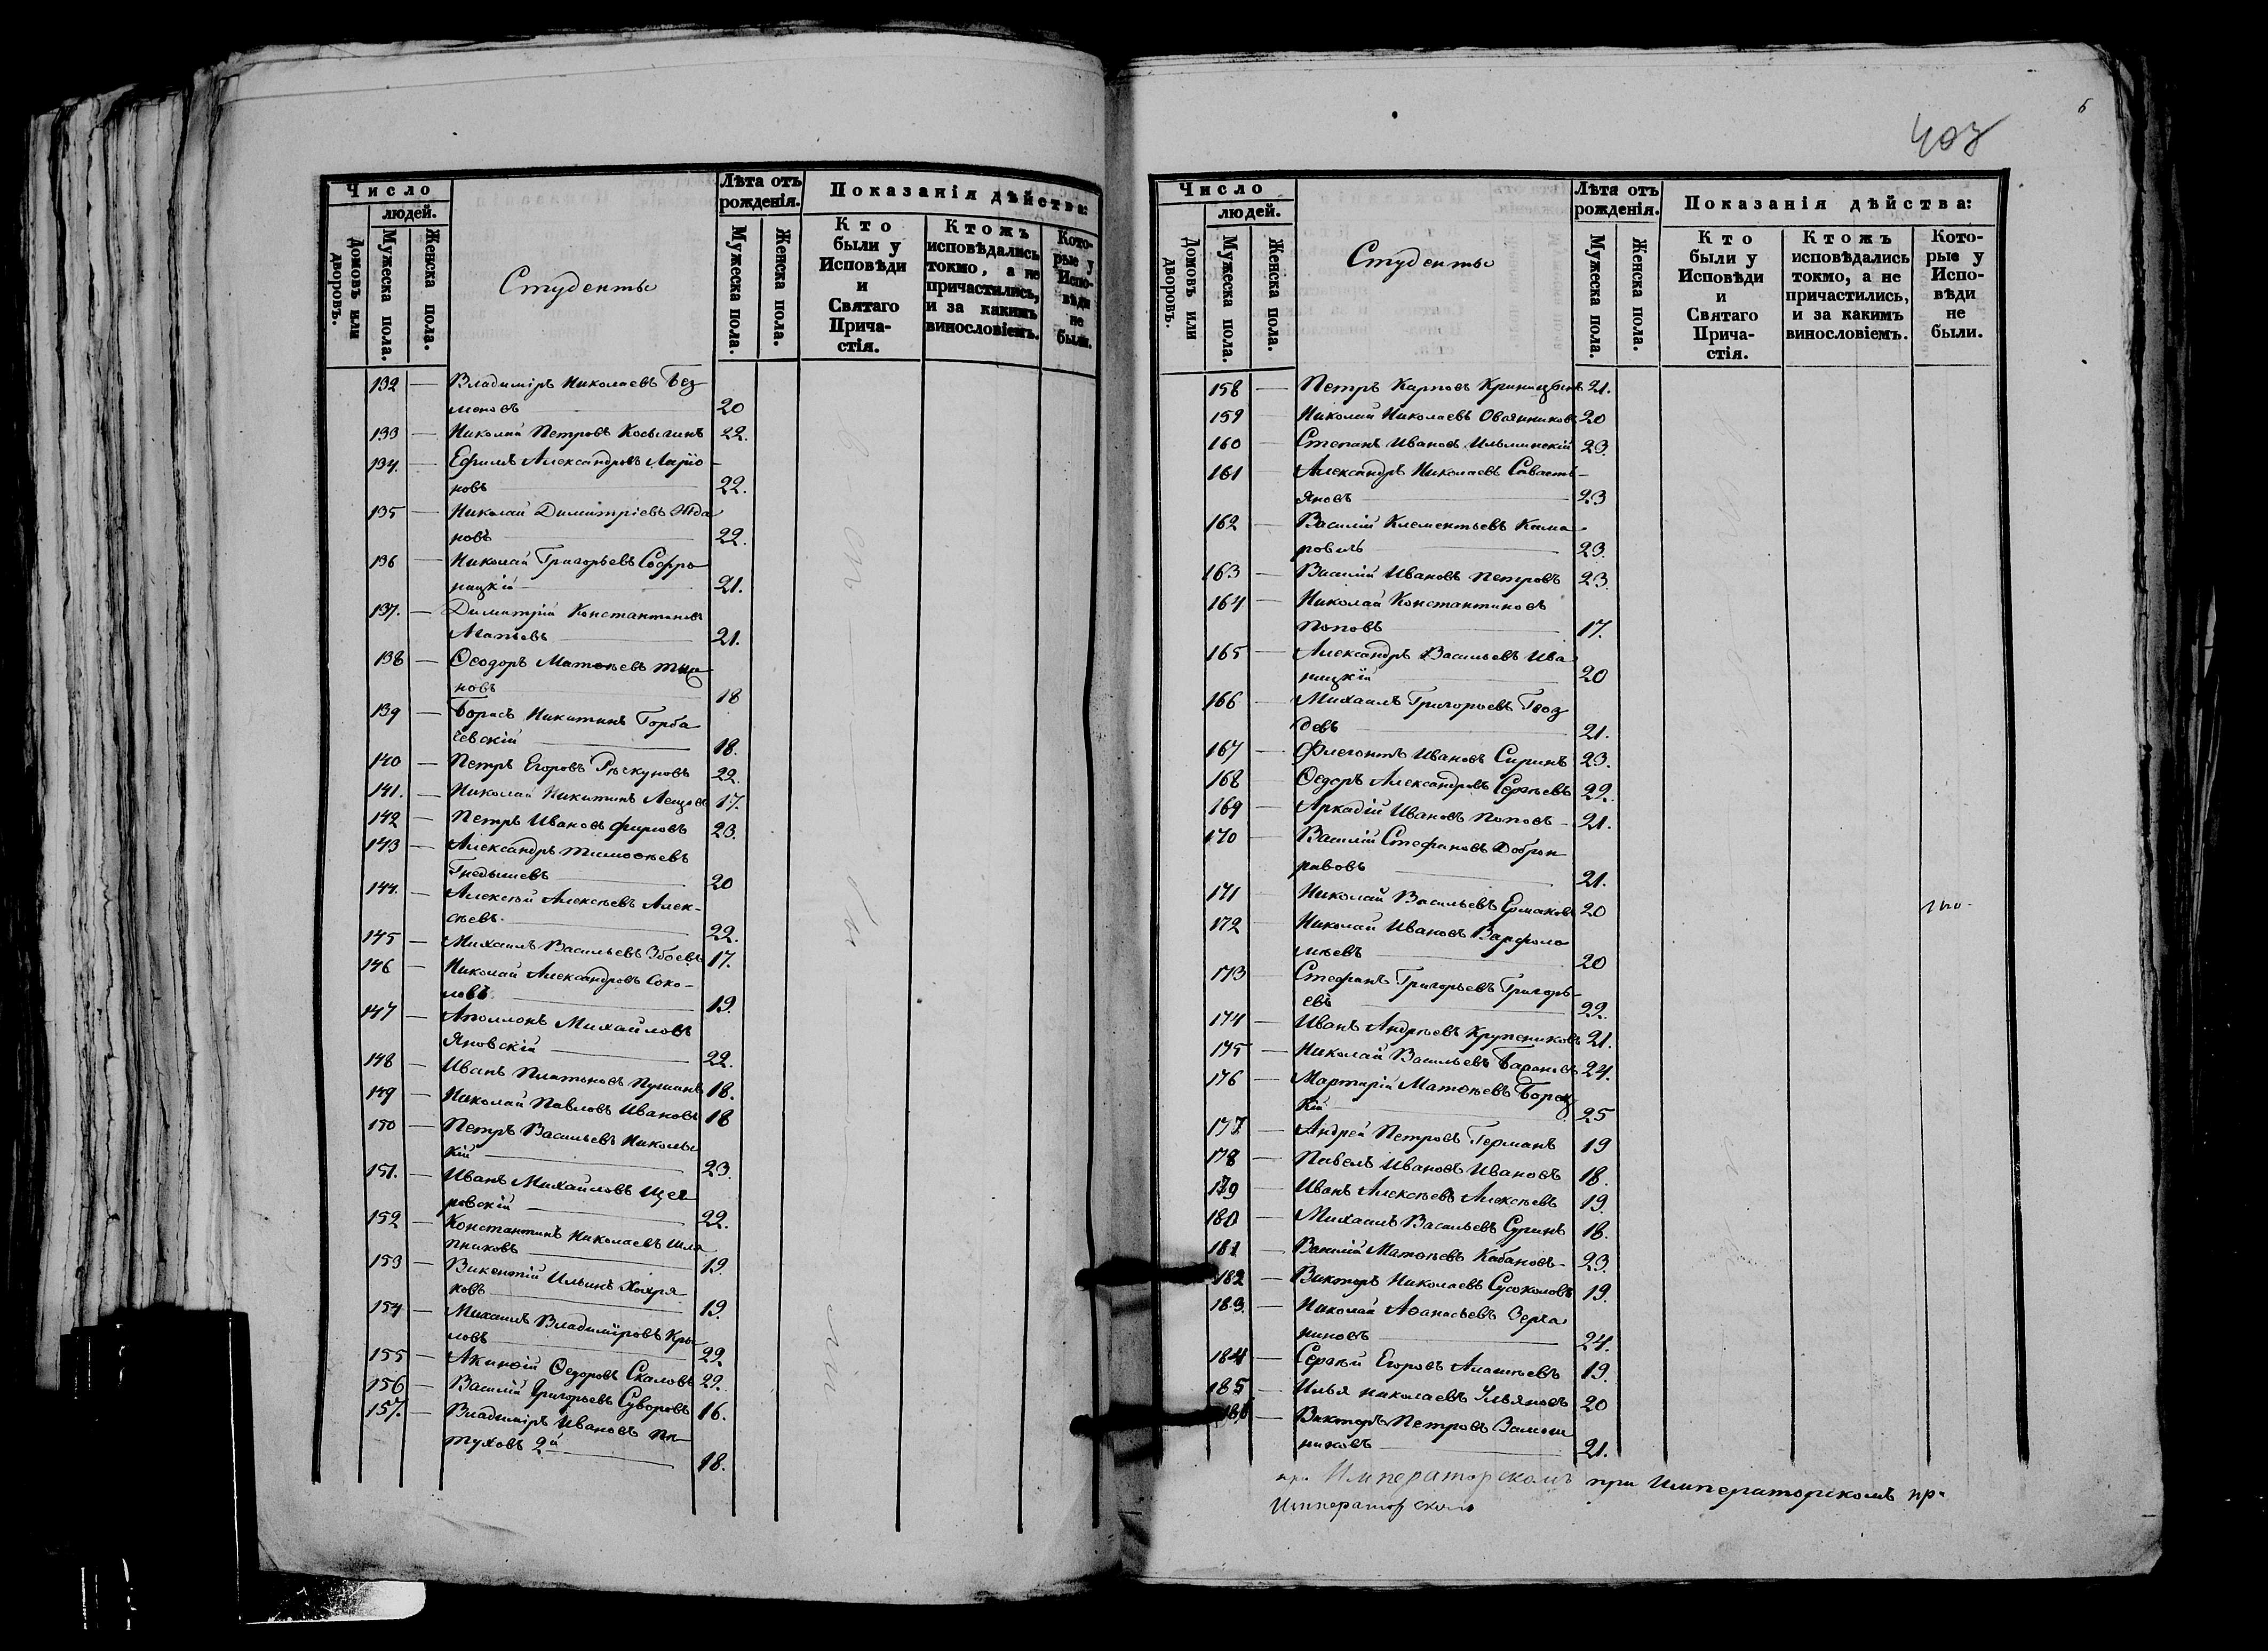 Число
людей.
Домовъ или дворовъ.
Мужеска пола.
Женска пола.
Студенты
Лѣта отъ рожденія.
Мужеска пола.
Женска пола.
Показанія дѣйства:
Кто были у Исповѣди и Святаго Прича-стія.
Ктожъ исповѣдались токмо, а не причастились, и за какимъ винословіемъ.
Кото-рые у Испо-вѣди не были.
132 — Владиміръ Николаевъ Без
меновъ 20
133 — Николай Петровъ Косыгинъ 22.
134. — Ефимъ Александровъ Ларіо-
новъ 22.
135 — Николай Димитріевъ Жда
новъ 22.
136 — Николай Григорьевъ Софро
ницкій 21.
137. — Димитрій Константиновъ
Агапьевъ 21.
138 — Ѳеодоръ Матвѣевъ
новъ 18
139 — Борисъ Никитинъ Горба
чевскій 18.
140 — Петръ Егоровъ Рѣскуновъ 22.
141. — Николай Никитинъ Лещовъ 17.
142 — Петръ Ивановъ Фирсовъ 23.
143 — Александръ Тимоѳѣевъ
Гнедышевъ 20
144. — Алексѣй Алексѣевъ Алек-
сѣевъ 22.
145 — Михаилъ Васильевъ Збоевъ 17.
146 — Николай Александровъ Соко-
ловъ 19.
147 — Аполлонъ Михайловъ
Яновскій 22.
148 — Иванъ Платоновъ 18.
149 — Николай Павловъ Ивановъ 18
150 — Петръ Васильевъ Николь
кій 23.
151. — Иванъ Михайловъ Щег
ровскій 22.
152 — Константинъ Николаевъ Шля
пниковъ 19.
153 — Викентій Ильинъ Хохря
ковъ 19.
154 — Михаилъ Владиміровъ Кры
ловъ 22.
155 — Акинѳій Ѳедоровъ Скаловъ 22.
156 — Василій Григорьевъ Суворовъ 16.
157. — Владиміръ Ивановъ Пѣ
туховъ 2й 18.
403
6
Число
людей.
Домовъ или дворовъ.
Мужеска пола.
Женска пола.
Студенты
Лѣта отъ рожденія.
Мужеска пола.
Женска пола.
Показанія дѣйства:
Кто были у Исповѣди и Святаго Прича-стія.
Ктожъ исповѣдались токмо, а не причастились, и за какимъ винословіемъ.
Кото-рые у Испо-вѣди не были.
158 — Петръ Карповъ 21.
159 — Николай Николаевъ Овсянниковъ 20
160 — Степанъ Ивановъ Ильминскій 23.
161 — Александръ Николаевъ Савасть-
яновъ 23
162 — Василій Клементьевъ Кома
ровичъ 23.
163 — Василій Ивановъ Петровъ 23.
164 — Николай Константиновъ
Поповъ 17.
165 — Александръ Васильевъ Ива
ницкій 20
166 — Михаилъ Григорьевъ Гвоз
девъ 21.
167 — Флегонтъ Ивановъ Сиринъ 23.
168 — Ѳедоръ Александровъ Сергѣевъ 22.
169 — Аркадій Ивановъ Поповъ — 21.
170 — Василій Стефановъ Доброн
равовъ 21.
171 — Николай Васильевъ Ермаковъ 20
172 — Николай Ивановъ Варфоло
мѣевъ 20
173 — Стефанъ Григорьевъ Григорь-
евъ 22.
174 — Иванъ Андрѣевъ Крупениковъ 21.
175 — Николай Васильевъ Барановъ 24.
176 — Мартирій Матвѣевъ Борец
кій 25
177. — Андрей Петровъ Германъ 19
178 — Павелъ Ивановъ Ивановъ 18.
179 — Иванъ Алексѣевъ Алексѣевъ 19.
180 — Михаилъ Васильевъ Суринъ 18.
181 — Василій Матвѣевъ Кабановъ — 23.
182 — Викторъ Николаевъ Сусоколовъ 19.
183. — Николай Аѳанасьевъ Зерха
ниновъ 24.
184 — Сергѣй Егоровъ 19.
185 — Илья Николаевъ Ульяновъ 20
186 — Викторъ Петровъ
никовъ 21.
при Императорскомъ при Императорскомъ пр
Императорскомъ